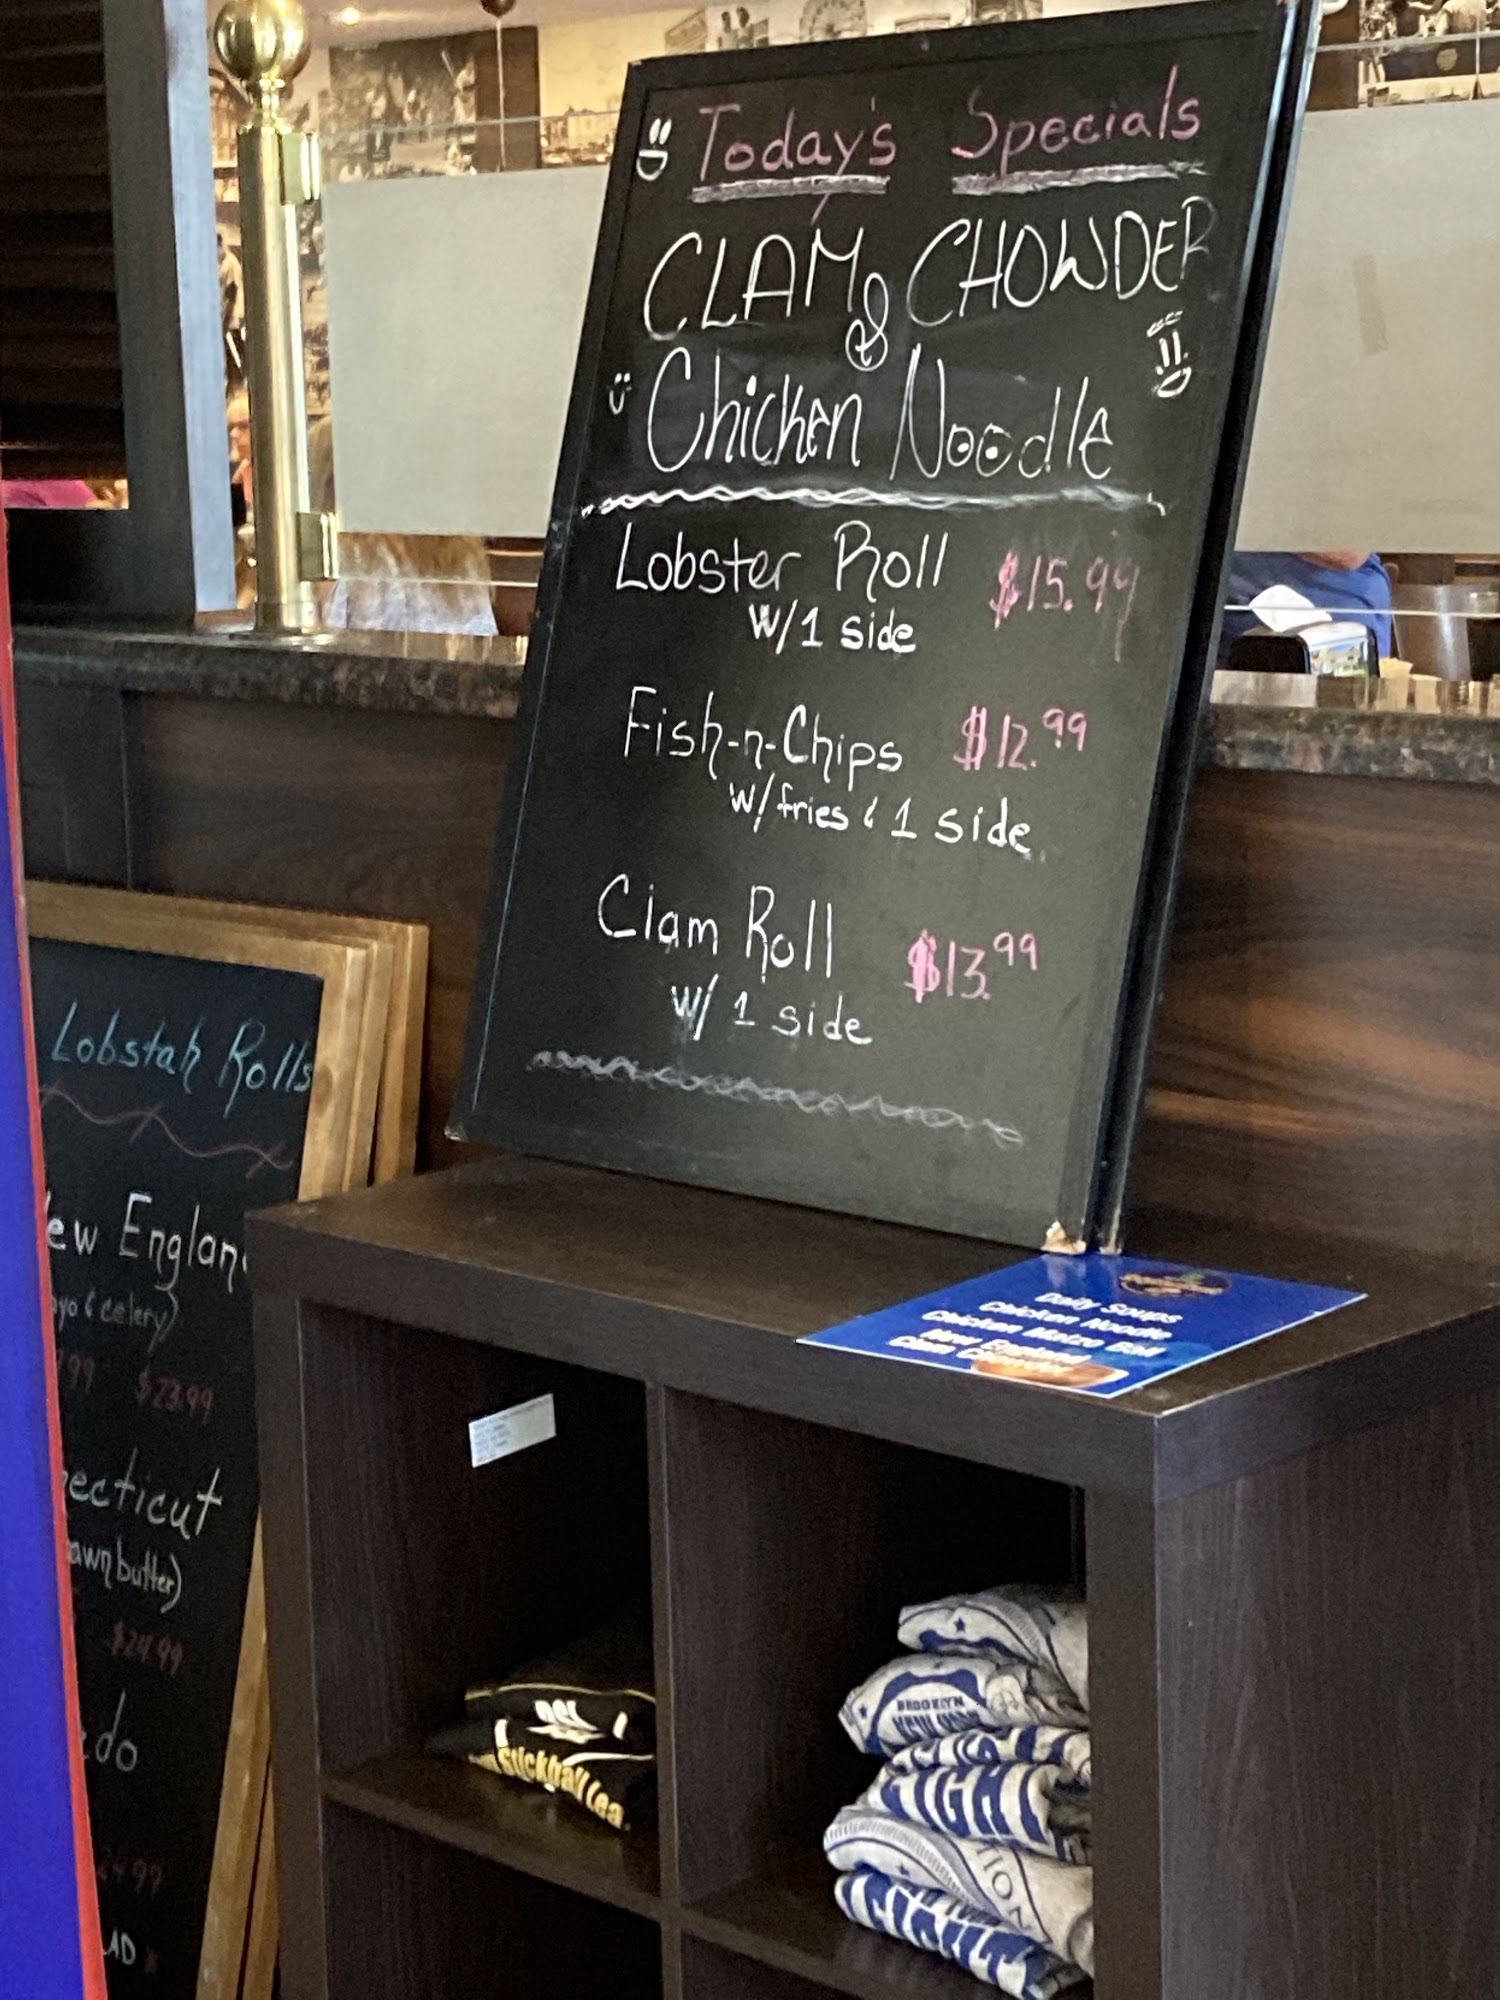 Today's Specials
CLAM CHOWDER
&
Chicken Noodle
Lobster Roll $15.99
w/1 side
Fish-n-Chips $12.99
w/fries & 1 side
Clam Roll $13.99
w/ 1 side
Lobstah Rolls
ew England
yo & celery)
.99 $23.99
necticut
awnbutter)
$24.99
do
24.99
LAD
Daily Soups
Chicken Noodle
Chicken Matzo Ball
New England
Clam Chowder
Stickball Lea
BROOKLYN
NEW YORK